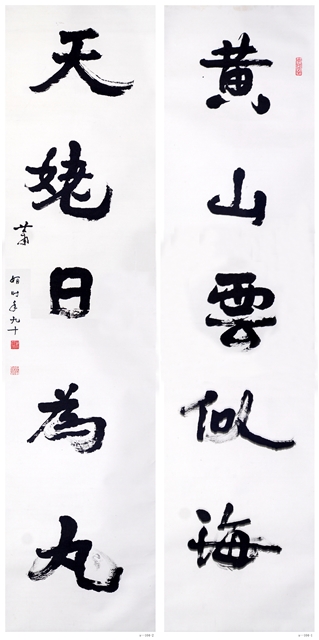 黄山雲似海
天姥日為丸
蕭嫻時年九十